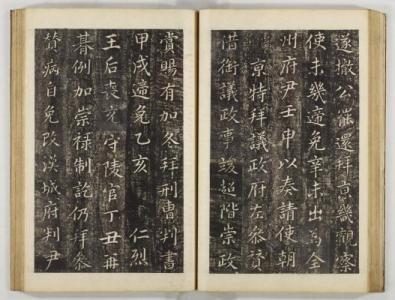 遂撤公罷還拜京畿觀察
使未幾適免辛未出為全
州府尹壬申以奏請使朝
京特拜議政府左參贊
借銜議政事竣超階崇政
賞賜有加冬拜刑曹判書
甲戌適免乙亥 仁烈
王后喪 守陵官丁丑再
朞例加崇祿制訖仍拜參
贊病自免改漢城府判尹